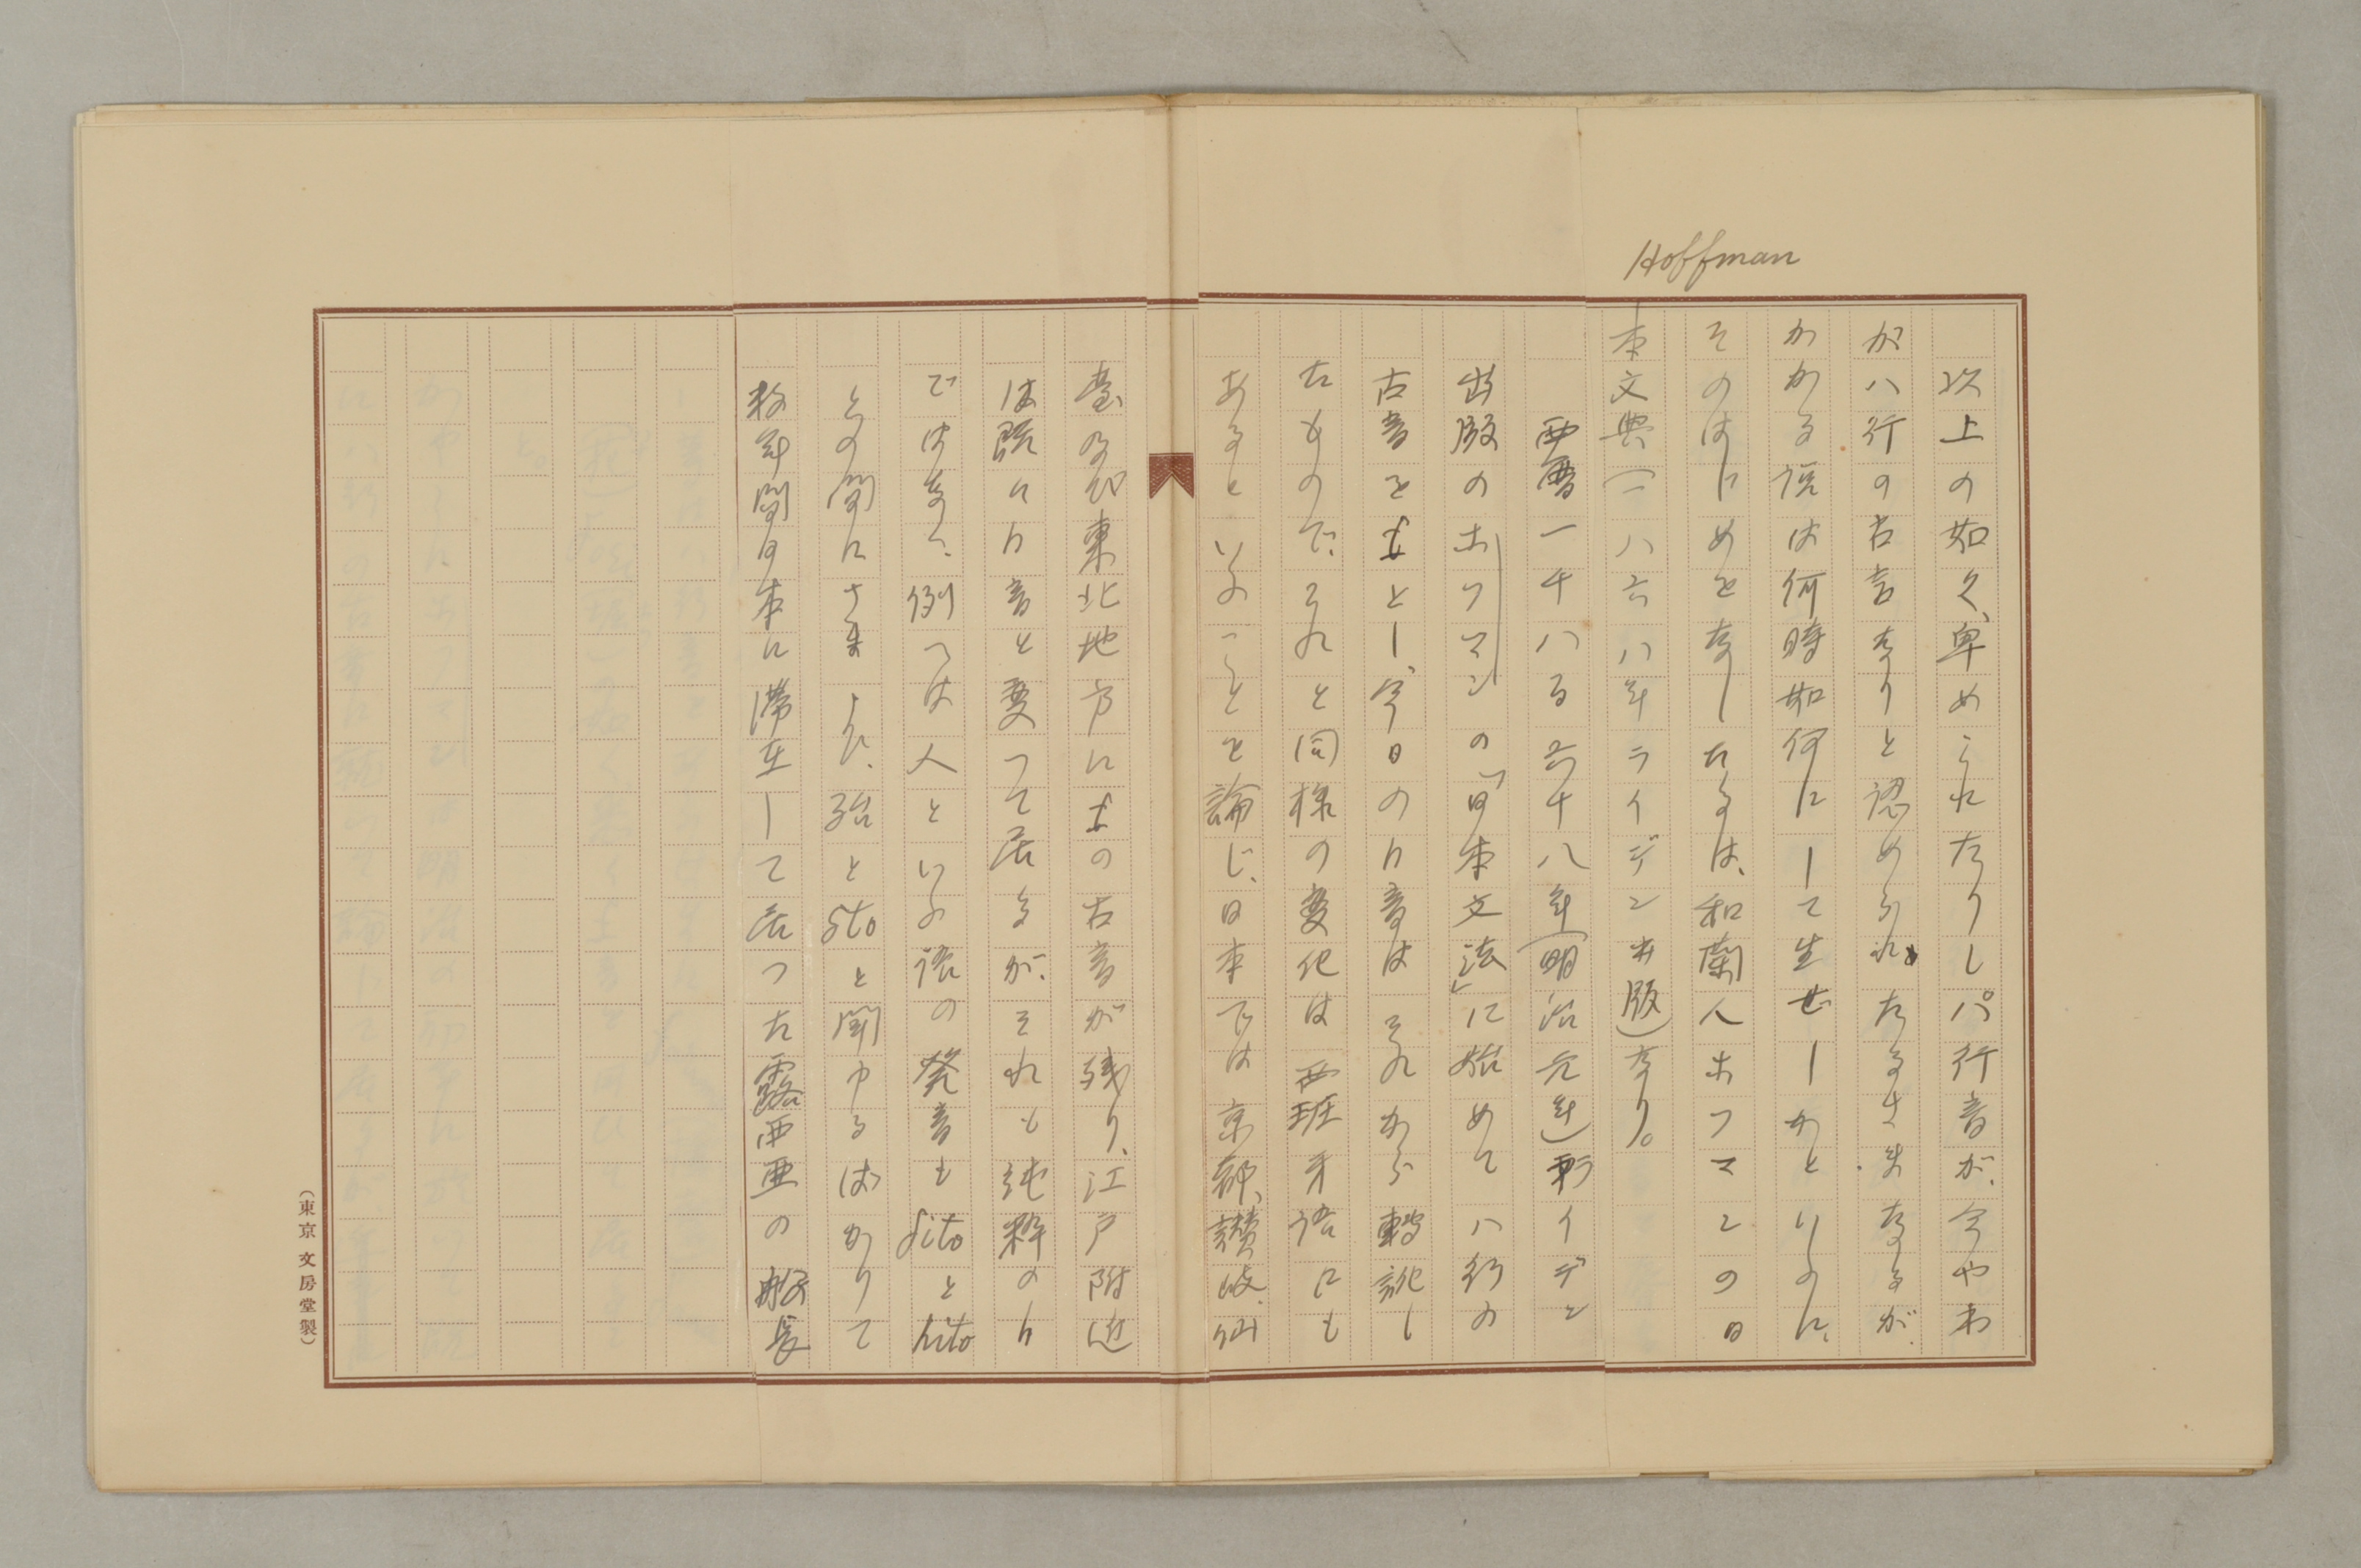 Hoffman
以上の如く、卑められたりしパ行音が、今やわ
がハ行の古音なりと認めらるゝたるさまなるが、
かかる説は何時如何にして生ぜしかといふに、
そのはじめを為したるは、和蘭人ホフマンの日
本文典(一八六八年ライデン出版)なり。
西暦一千八百六十八年(明治元年)和イデン
出版のホフマンの『日本文法』に始めてハ行の
古音をfとし、今日のh音はそれから転訛し
たもので、それと同様の変化は西班牙語にも
あるといふことを論じ、日本では京都、讃岐、仙
臺及び東北地方にfの古音が残り、江戸附近
は既にh音と変つて居るが、それも純粋のh
ではなく、例へは人といふ語の発音もfitoとhito
との間にさまよひ、殆どstoと聞ゆるばかりて
数年間日本に滞在して居つた露西亜の船長
(東京 文房堂製)